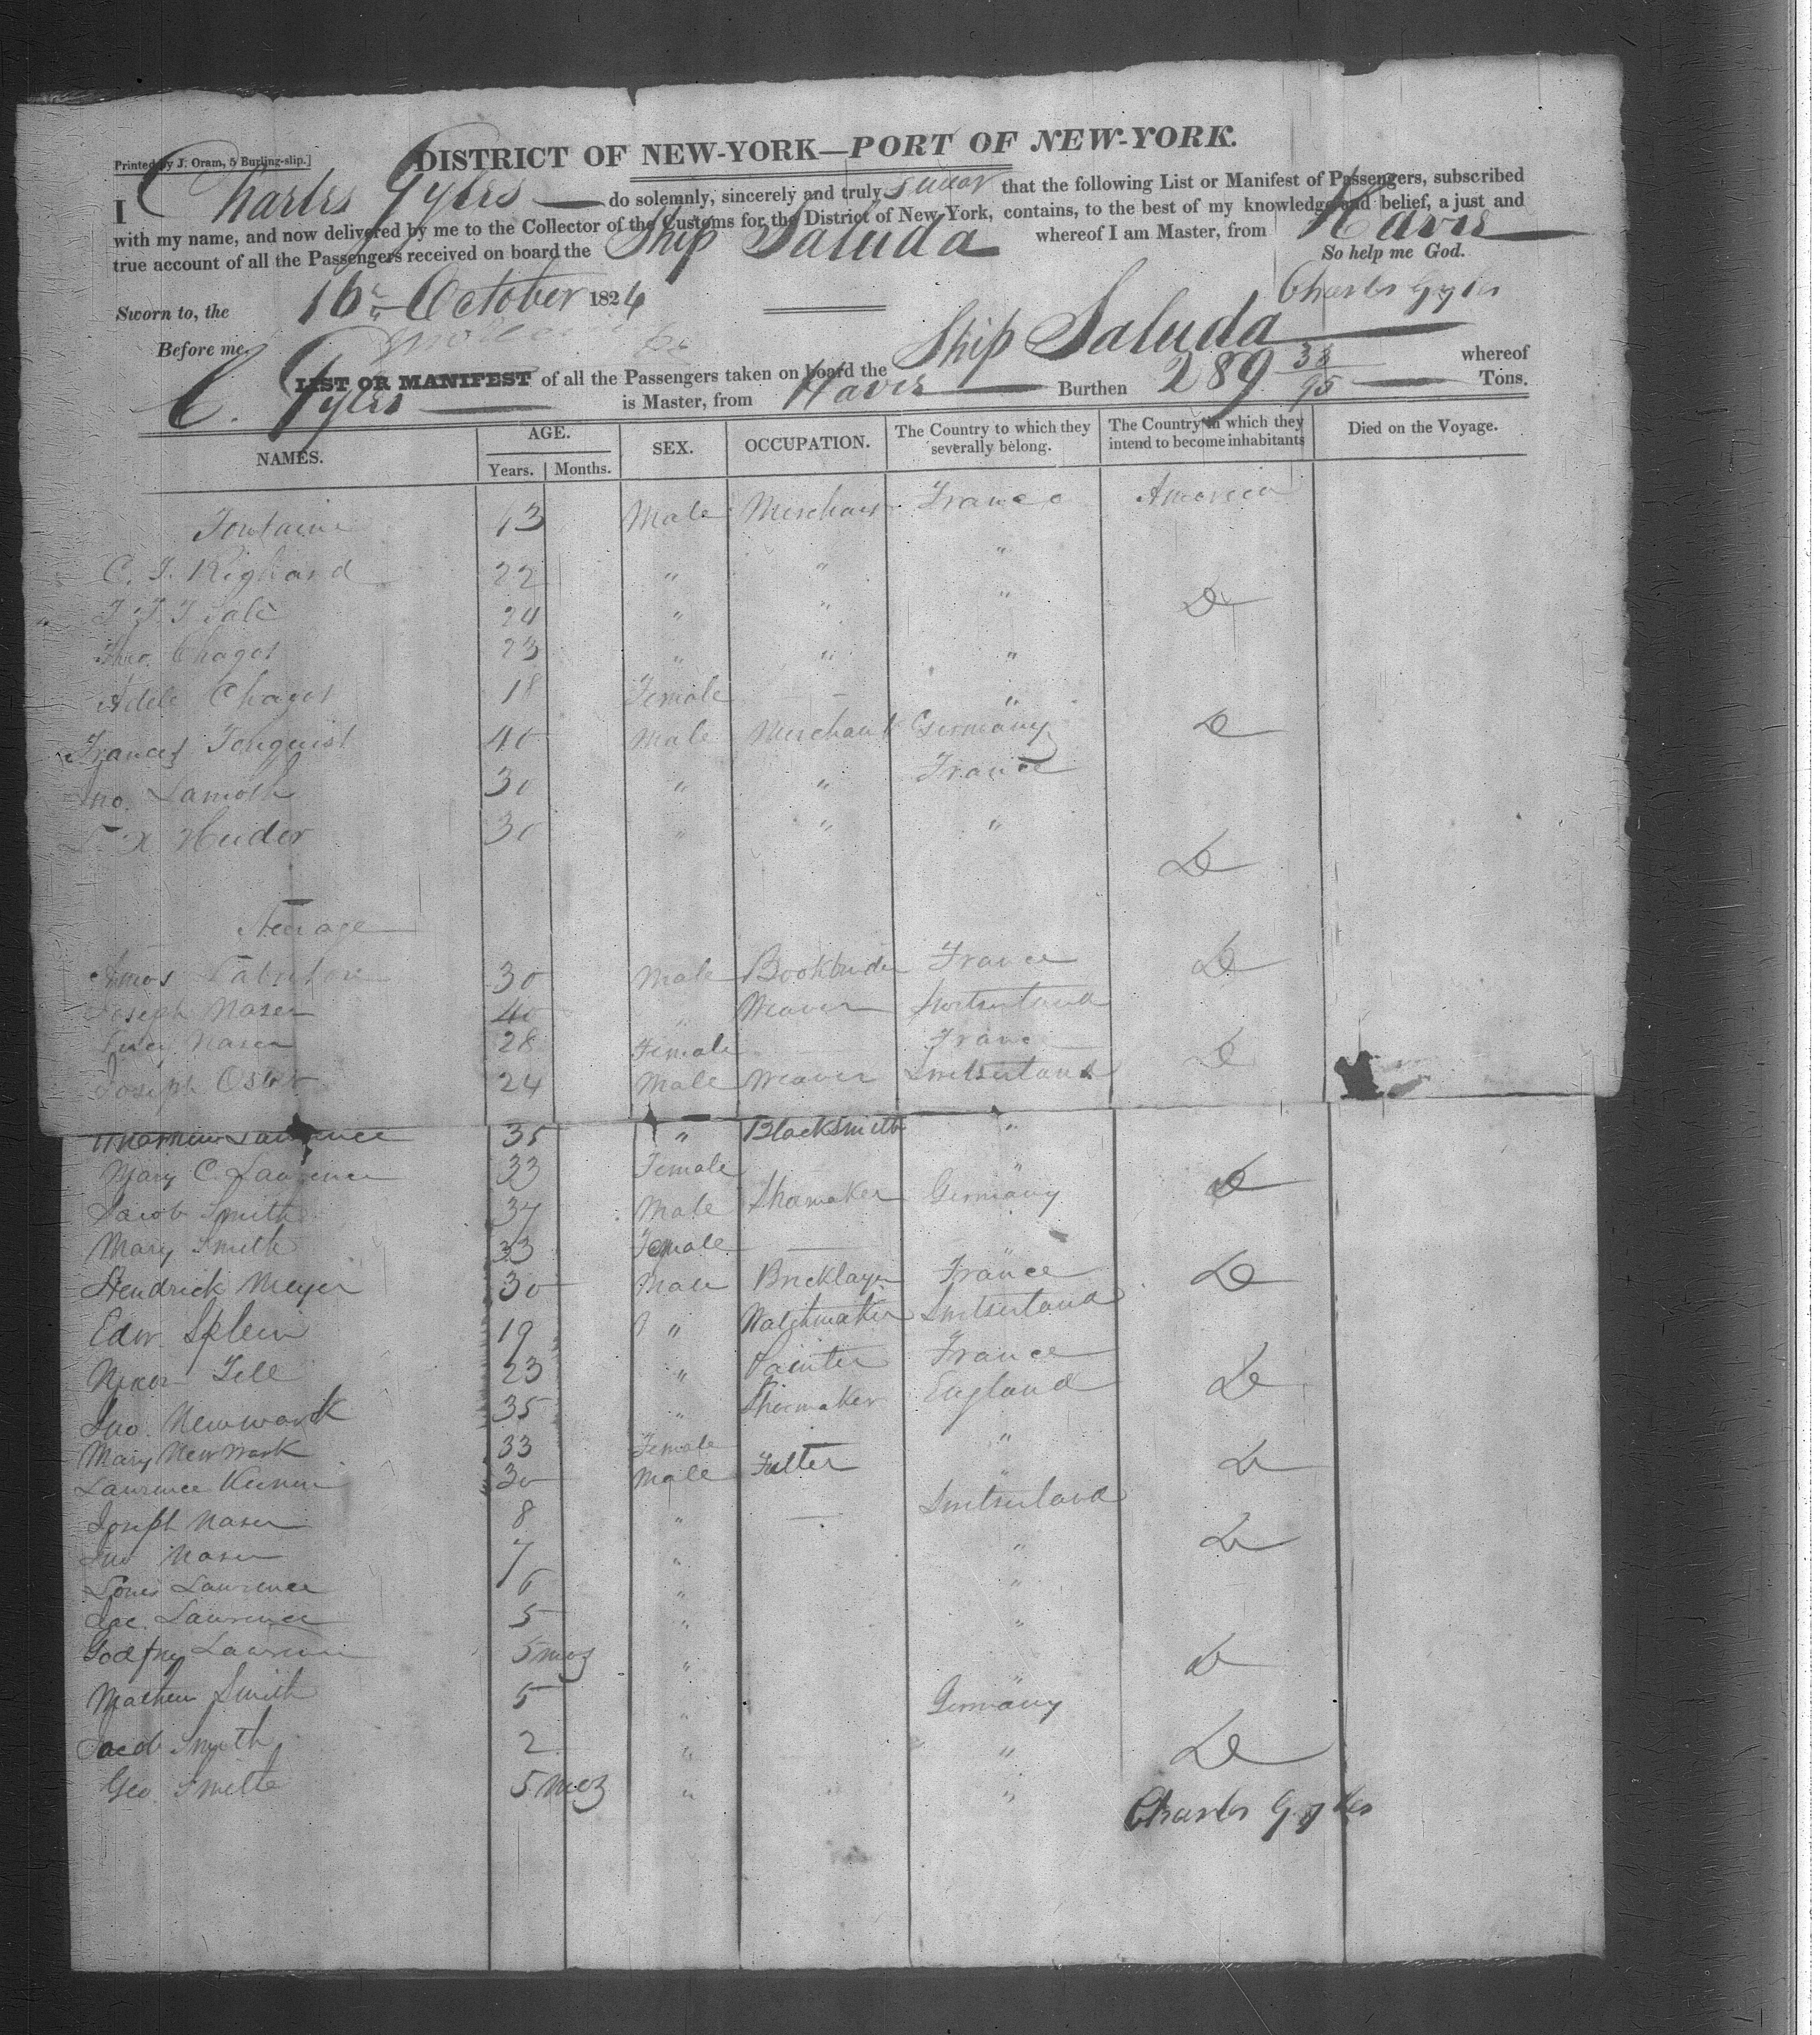 Printed by J. Oram, 5 Burling-slip.]
DISTRICT OF NEW-YORK—PORT OF NEW-YORK.
I Charles Gyles do solemnly, sincerely and truly swear that the following List or Manifest of Passengers, subscribed
with my name, and now delivered by me to the Collector of the Customs for the District of New York, contains, to the best of my knowledge and belief, a just and
true account of all the Passengers received on board the Ship Saluda whereof I am Master, from Havre
So help me God.
Sworn to, the 16th October 1824
Charles Gyles
Before me,
LIST OR MANIFEST of all the Passengers taken on board the Ship Saluda whereof
C. Gyles is Master, from Havre Burthen 289 33/95 Tons.
NAMES. AGE. SEX. OCCUPATION. The Country to which they severally belong. The Country in which they intend to become inhabitants Died on the Voyage.
Years. Months.
Fontaine Male Merchant France America
C. 22 " " "
24 " " " Do
Theo. Chagot 23 " " "
Adele Chagot 18 Female — — "
Frances 40 Male Merchant Germany Do
Jno. Lamoth 30 " " France
30 " " " Do
Steerage
Amos 30 Male Bookbinder France Do
Joseph Naser 40 " Weaver Switserland
Naser 28 Female — France
Joseph 24 Male Weaver Switserland Do
Lawrence 35 " Blacksmith "
Mary C. Lawrence 33 Female "
Jacob Smith 37 Male Shoemaker Germany Do
Mary Smith 33 Female —
Hendrick Meyer 30 Male Bricklayer France Do
Edw. Splein 19 " Watchmaker Switserland
23 " Painter France
Jno. Newwark 35 " Shoemaker England Do
Mary Newwark 33 Female "
Lawrence 30 Male " Do
Joseph Naser 8 " — Switserland
Jno Naser 7 " " Do
Louis Lawrence 6 " "
Jac. Lawrence 5 " "
Godfrey Lawrence 5 mos " " Do
Mathew Smith 5 " Germany
Jacob Smith 2 " " Do
Geo. Smith 5 mos " "
Charles Gyles